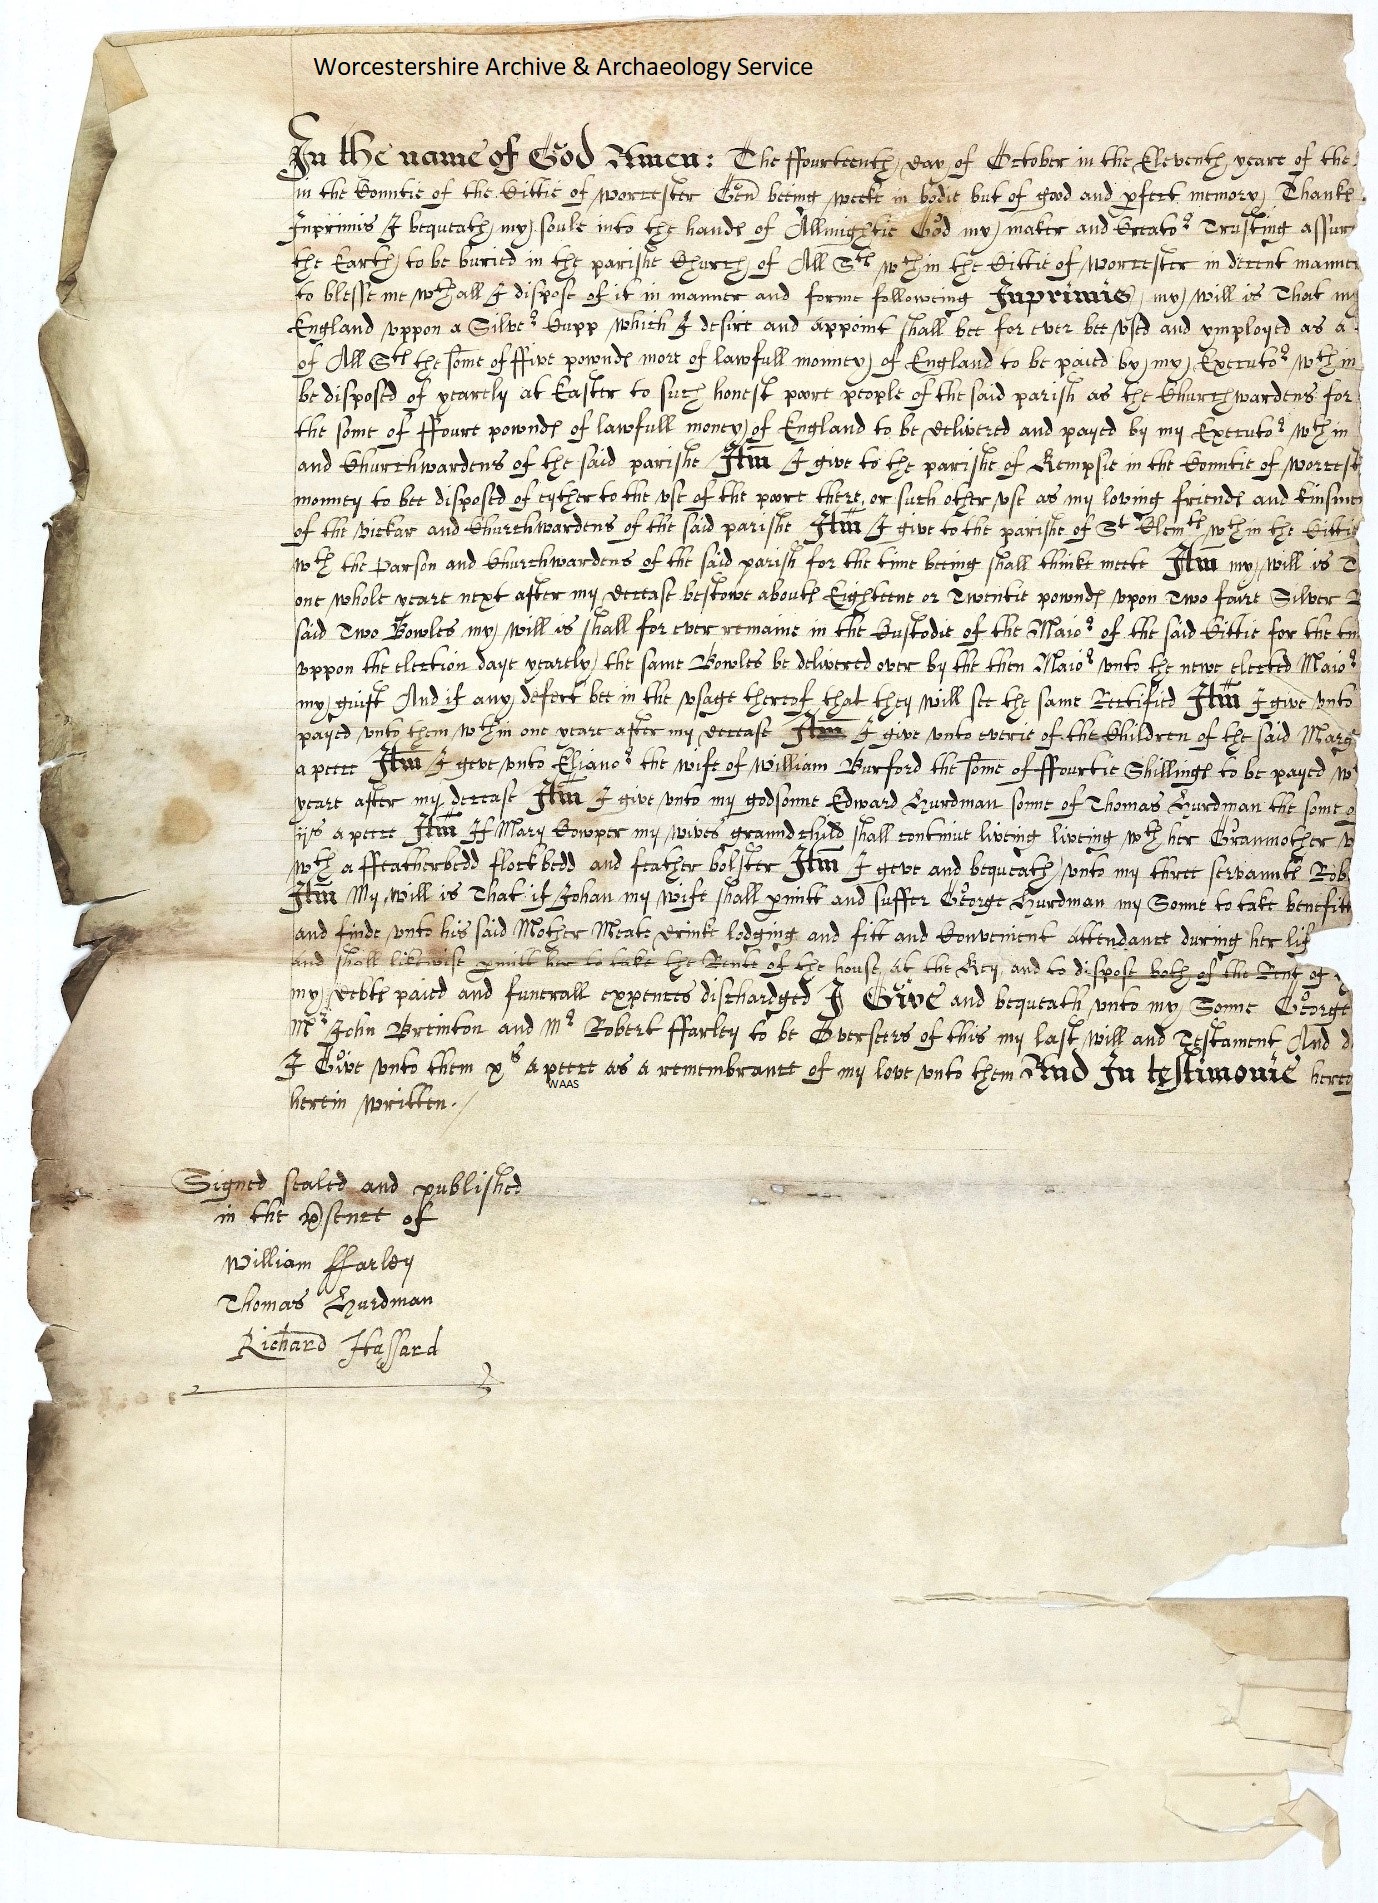 Worcestershire Archive & Archaeology Service
In the name of God Amen: The ffourteenth day of October in the Eleventh yeare of the
in the Countie of the Cittie of Worcester Gen beeing weeke in bodie but of good and pfect memory Thanke
Inprimis I bequeath my soule into the hands of Allmightie God my maker and Creator Trusting assur
the Earth to be buried in the parishe Church of All Sts wthin the Cittie of Worcester in decent manner
to blesse me wthall I dispose of it in manner and forme followeing Inprimis my will is That my
England uppon a Silver Cupp which I desire and appoint shall bee for ever bee used and ymployed as a
of All Sts the some of ffive pownds more of lawfull monney of England to be paied by my Executor wthin
be disposed of yearely at Easter to such honest poore people of the said parish as the Churchwardens for
the some of ffoure pownds of lawfull money of England to be delivered and payed by my Executor wthin
and Churchwardens of the said parishe Itm I give to the parishe of Kempsie in the Countie of Worcest
monney to bee disposed of eyther to the use of the poore there or such other use as my loving friends and kinsmen
of the Vickar and Churchwardens of the said parishe Itm I give to the parishe of St Clemts wthin the Cittie
wth the Parson and Churchwardens of the said parish for the time beeing shall thinke meete Itm my will is T
one whole yeare next after my decease bestowe aboute Eighteene or Twentie pownds upon Two faire Silver B
said Two Bowles my will is shall for ever remaine in the Custodie of the Maior of the said Cittie for the tim
uppon the election daye yearely the same Bowles be delivered over by the then Maior unto the newe elected Maior
my guift And if any defect bee in the usage thereof that they will see the same Rectified Itm I give unto
payed unto them wthin one yeare after my decease Itm I give unto everie of the Children of the said Marg
a peece Itm I geve unto Elianor the wife of William Burford the some of ffourtie Shillings to be payed w
yeare after my decease Itm I give unto my godsonne Edward Hurdman sonne of Thomas Hurdman the some o
a peece Itm If Mary Cowper my wives graundchild shall continue liveing liveing wth her Granmother
wth a ffeatherbedd flockbedd and feather bolster Itm I geve and bequeath unto my three servaunts Rob
Itm My will is That if Johan my wife shall pmitt and suffer George Hurdman my Sonne to take benefitt
and finde unto his said Mother Meate drinke lodging and fitt and Convenient attendance during her lif
and shall likewise pmitt her to take the Rente of the house at the Key and to dispose both of the Rent of
my debts paied and funerall expences dischardged I Give and bequeath unto my Sonne George
Mr John Breinton and Mr Robert ffarley to be Overseers of this my last will and Testament And d
I Give unto them xs a peece as a remembrance of my love unto them And In testimonie hereo
WAAS
herein written.
Signed sealed and published
in the psence of
William ffarley
Thomas Hurdman
Richard Hassard